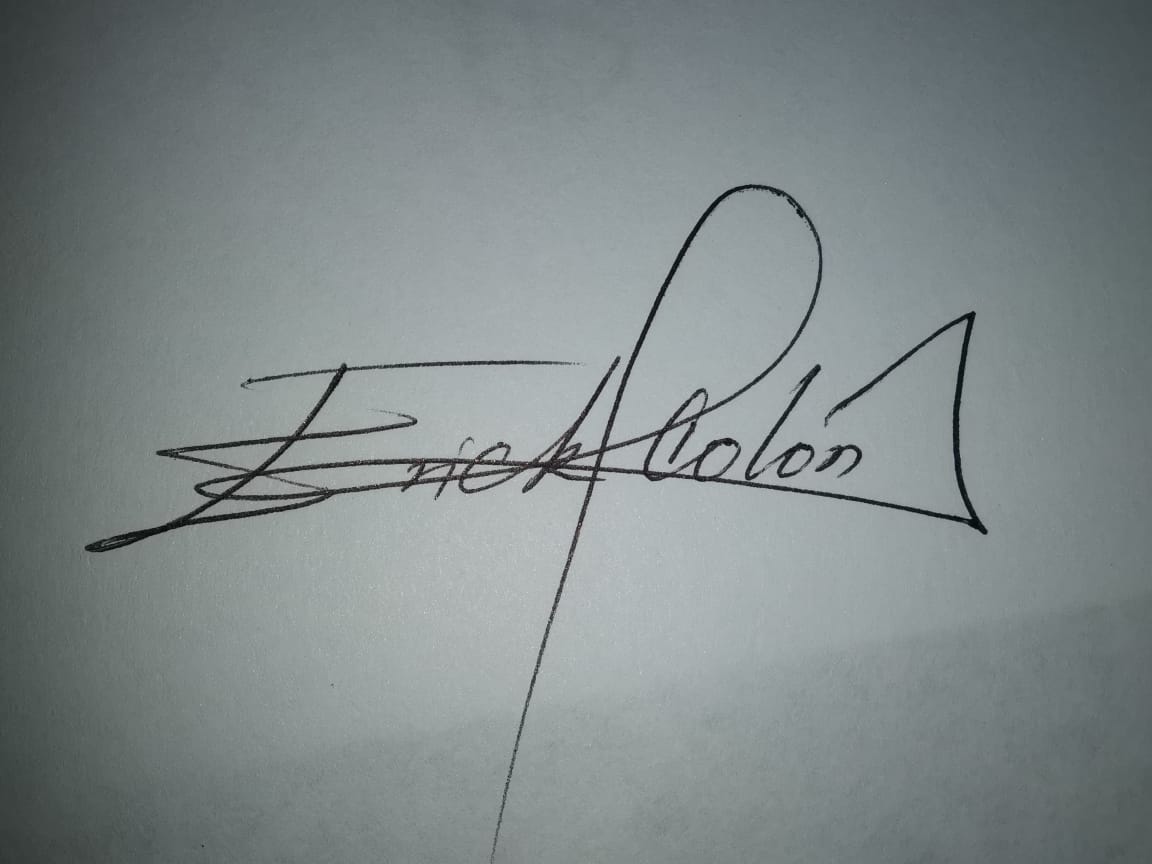 Erick Colón